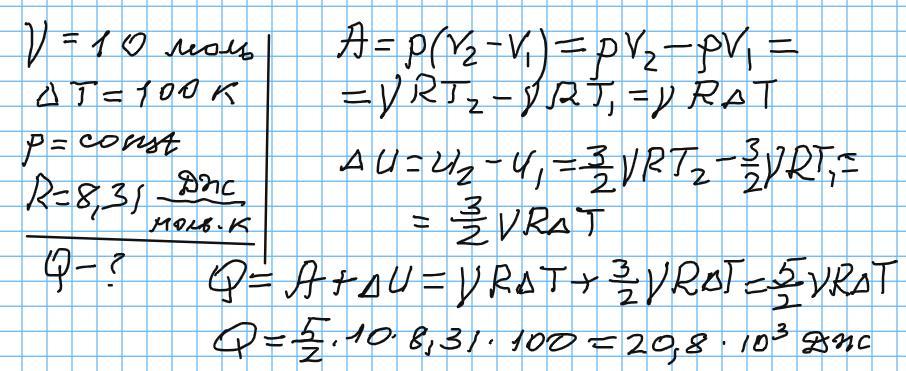 ν = 10 моль
ΔT = 100 К
p = const
R = 8,31 Дж/моль·К
Q - ?
A = p(V₂ - V₁) = pV₂ - pV₁ =
= νRT₂ - νRT₁ = νRΔT
ΔU = U₂ - U₁ = 3/2 νRT₂ - 3/2 νRT₁ =
= 3/2 νRΔT
Q = A + ΔU = νRΔT + 3/2 νRΔT = 5/2 νRΔT
Q = 5/2 · 10 · 8,31 · 100 = 20,8 · 10³ Дж